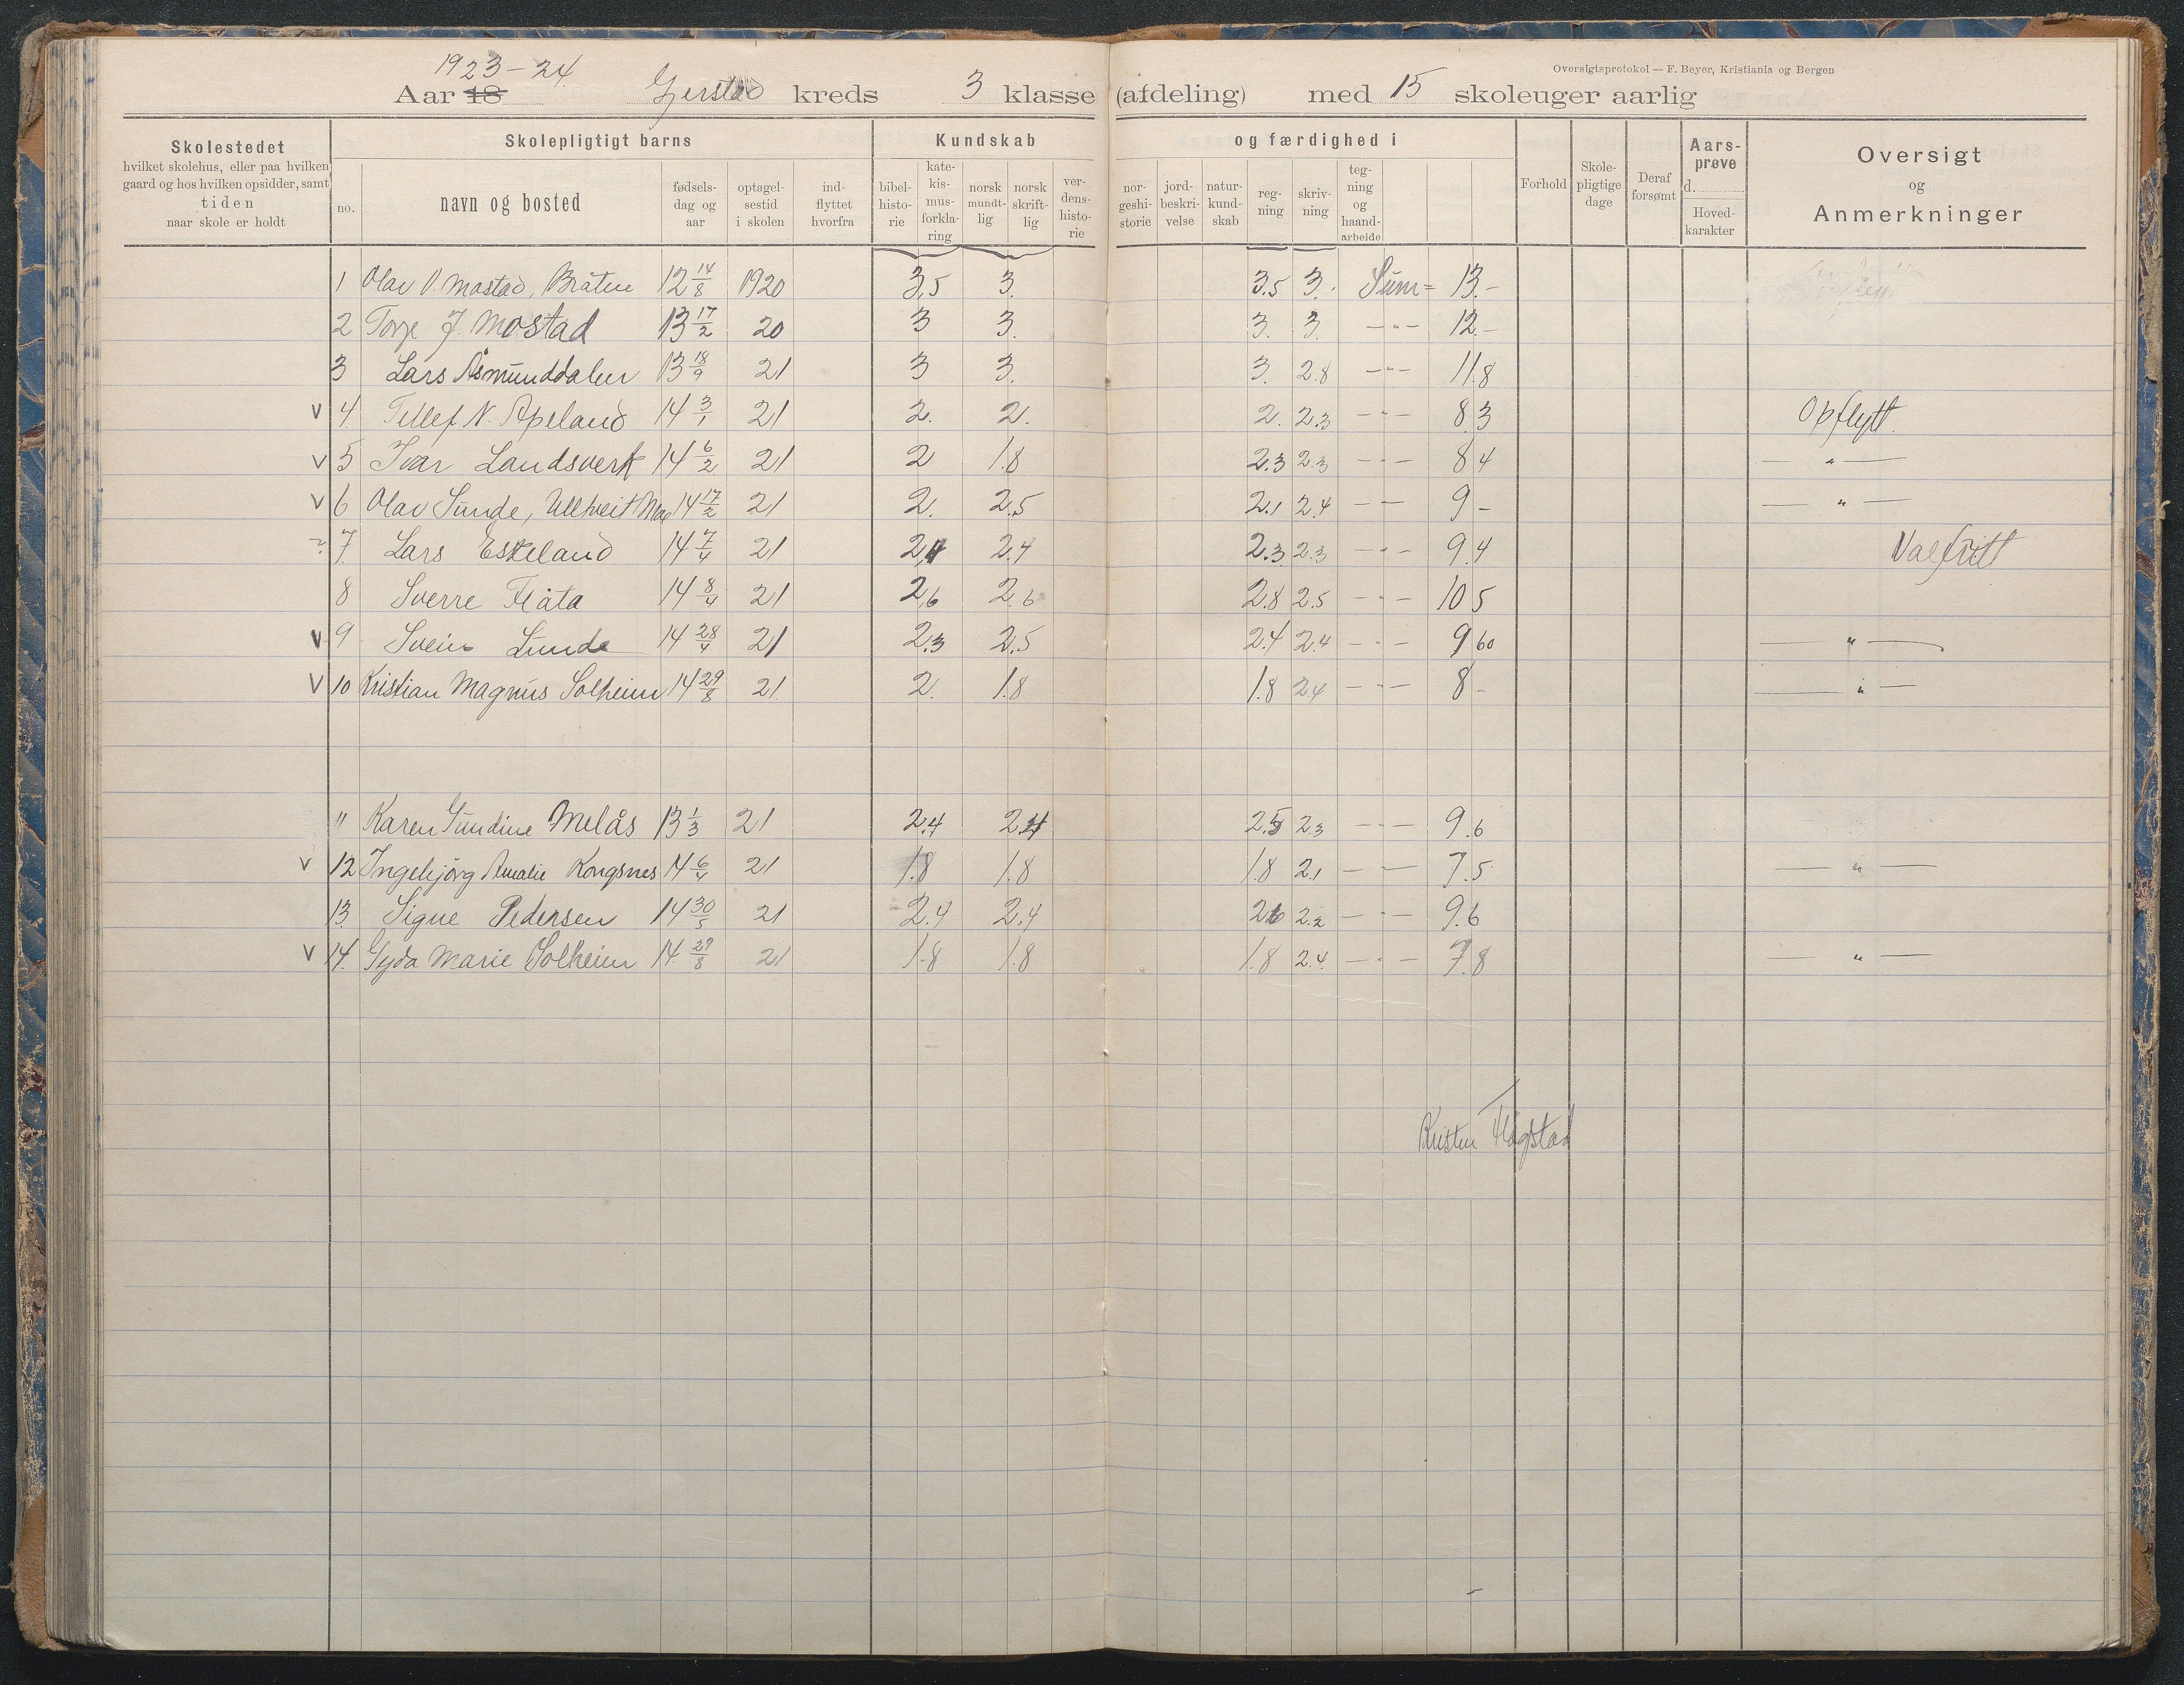 Oversigtsprotokol — F. Beyer, Kristiania og Bergen
1923-24.
Aar 18 Gjerstad kreds 3 klasse (afdeling) med 15 skoleuger aarlig
Skolestedet
hvilket skolehus, eller paa hvilken
gaard og hos hvilken opsidder, samt
tiden
naar skole er holdt
Skolepligtigt barns
no.
navn og bosted
fødsels-
dag og
aar
optagel-
sestid
i skolen
ind-
flyttet
hvorfra
Kundskab og færdighed i
bibel-
histo-
rie
kate-
kis-
mus-
forkla-
ring
norsk
mundt-
lig
norsk
skrift-
lig
ver-
dens-
histo-
rie
nor-
geshi-
storie
jord-
beskri-
velse
natur-
kund-
skab
reg-
ning
skriv-
ning
teg-
ning
og
haand-
arbeide
Forhold
Skole-
pligtige
dage
Deraf
forsømt
Aars-
prøve
d.
Hoved-
karakter
Oversigt
og
Anmerkninger
1 Olav O. Mostad, Bråten 12 14/8 1920 3,5 3. 3.5 3. Sum = 13.-
2 Torje J. Mostad 13 17/2 20 3 3. 3. 3. -"- 12.-
3 Lars Åsmunddalen 13 18/9 21 3 3. 3. 2.8 -"- 11.8
v 4. Tellef N. Apeland 14 3/1 21 2. 2. 2. 2.3 -"- 8.3 Opflytt.
v 5 Ivar Landsverk 14 6/2 21 2 1.8 2.3 2.3 -"- 8 4 -"-
v 6 Olav Sunde, Ulltveit Moe 14 17/2 21 2. 2.5 2.1 2.4 -"- 9 - -"-
? 7. Lars Eskeland 14 7/4 21 2,4 2.4 2.3 2.3 -"- 9.4 Valfritt
8 Sverre Flåta 14 8/4 21 2,6 2.6 2.8 2.5 -"- 10 5
v 9 Svein Lunde 14 28/4 21 2.3 2.5 2.4 2.4 -"- 9 60 -"-
v 10 Kristian Magnus Solheim 14 29/8 21 2. 1.8 1.8 2.4 -"- 8 - -"-
11 Karen Gundine Melås 13 1/3 21 2.4 2.4 2.5 2.3 -"- 9.6
v 12 Ingebjörg Amalie Kongsnes 14 6/4 21 1.8 1.8 1.8 2.1 -"- 7.5 -"-
13. Signe Pedersen 14 30/5 21 2.4 2.4 2.6 2.2 -"- 9.6
v 14. Gyda Marie Solheim 14 29/8 21 1.8 1.8 1.8 2.4. -"- 7.8 -"-
Kristen Flögstad